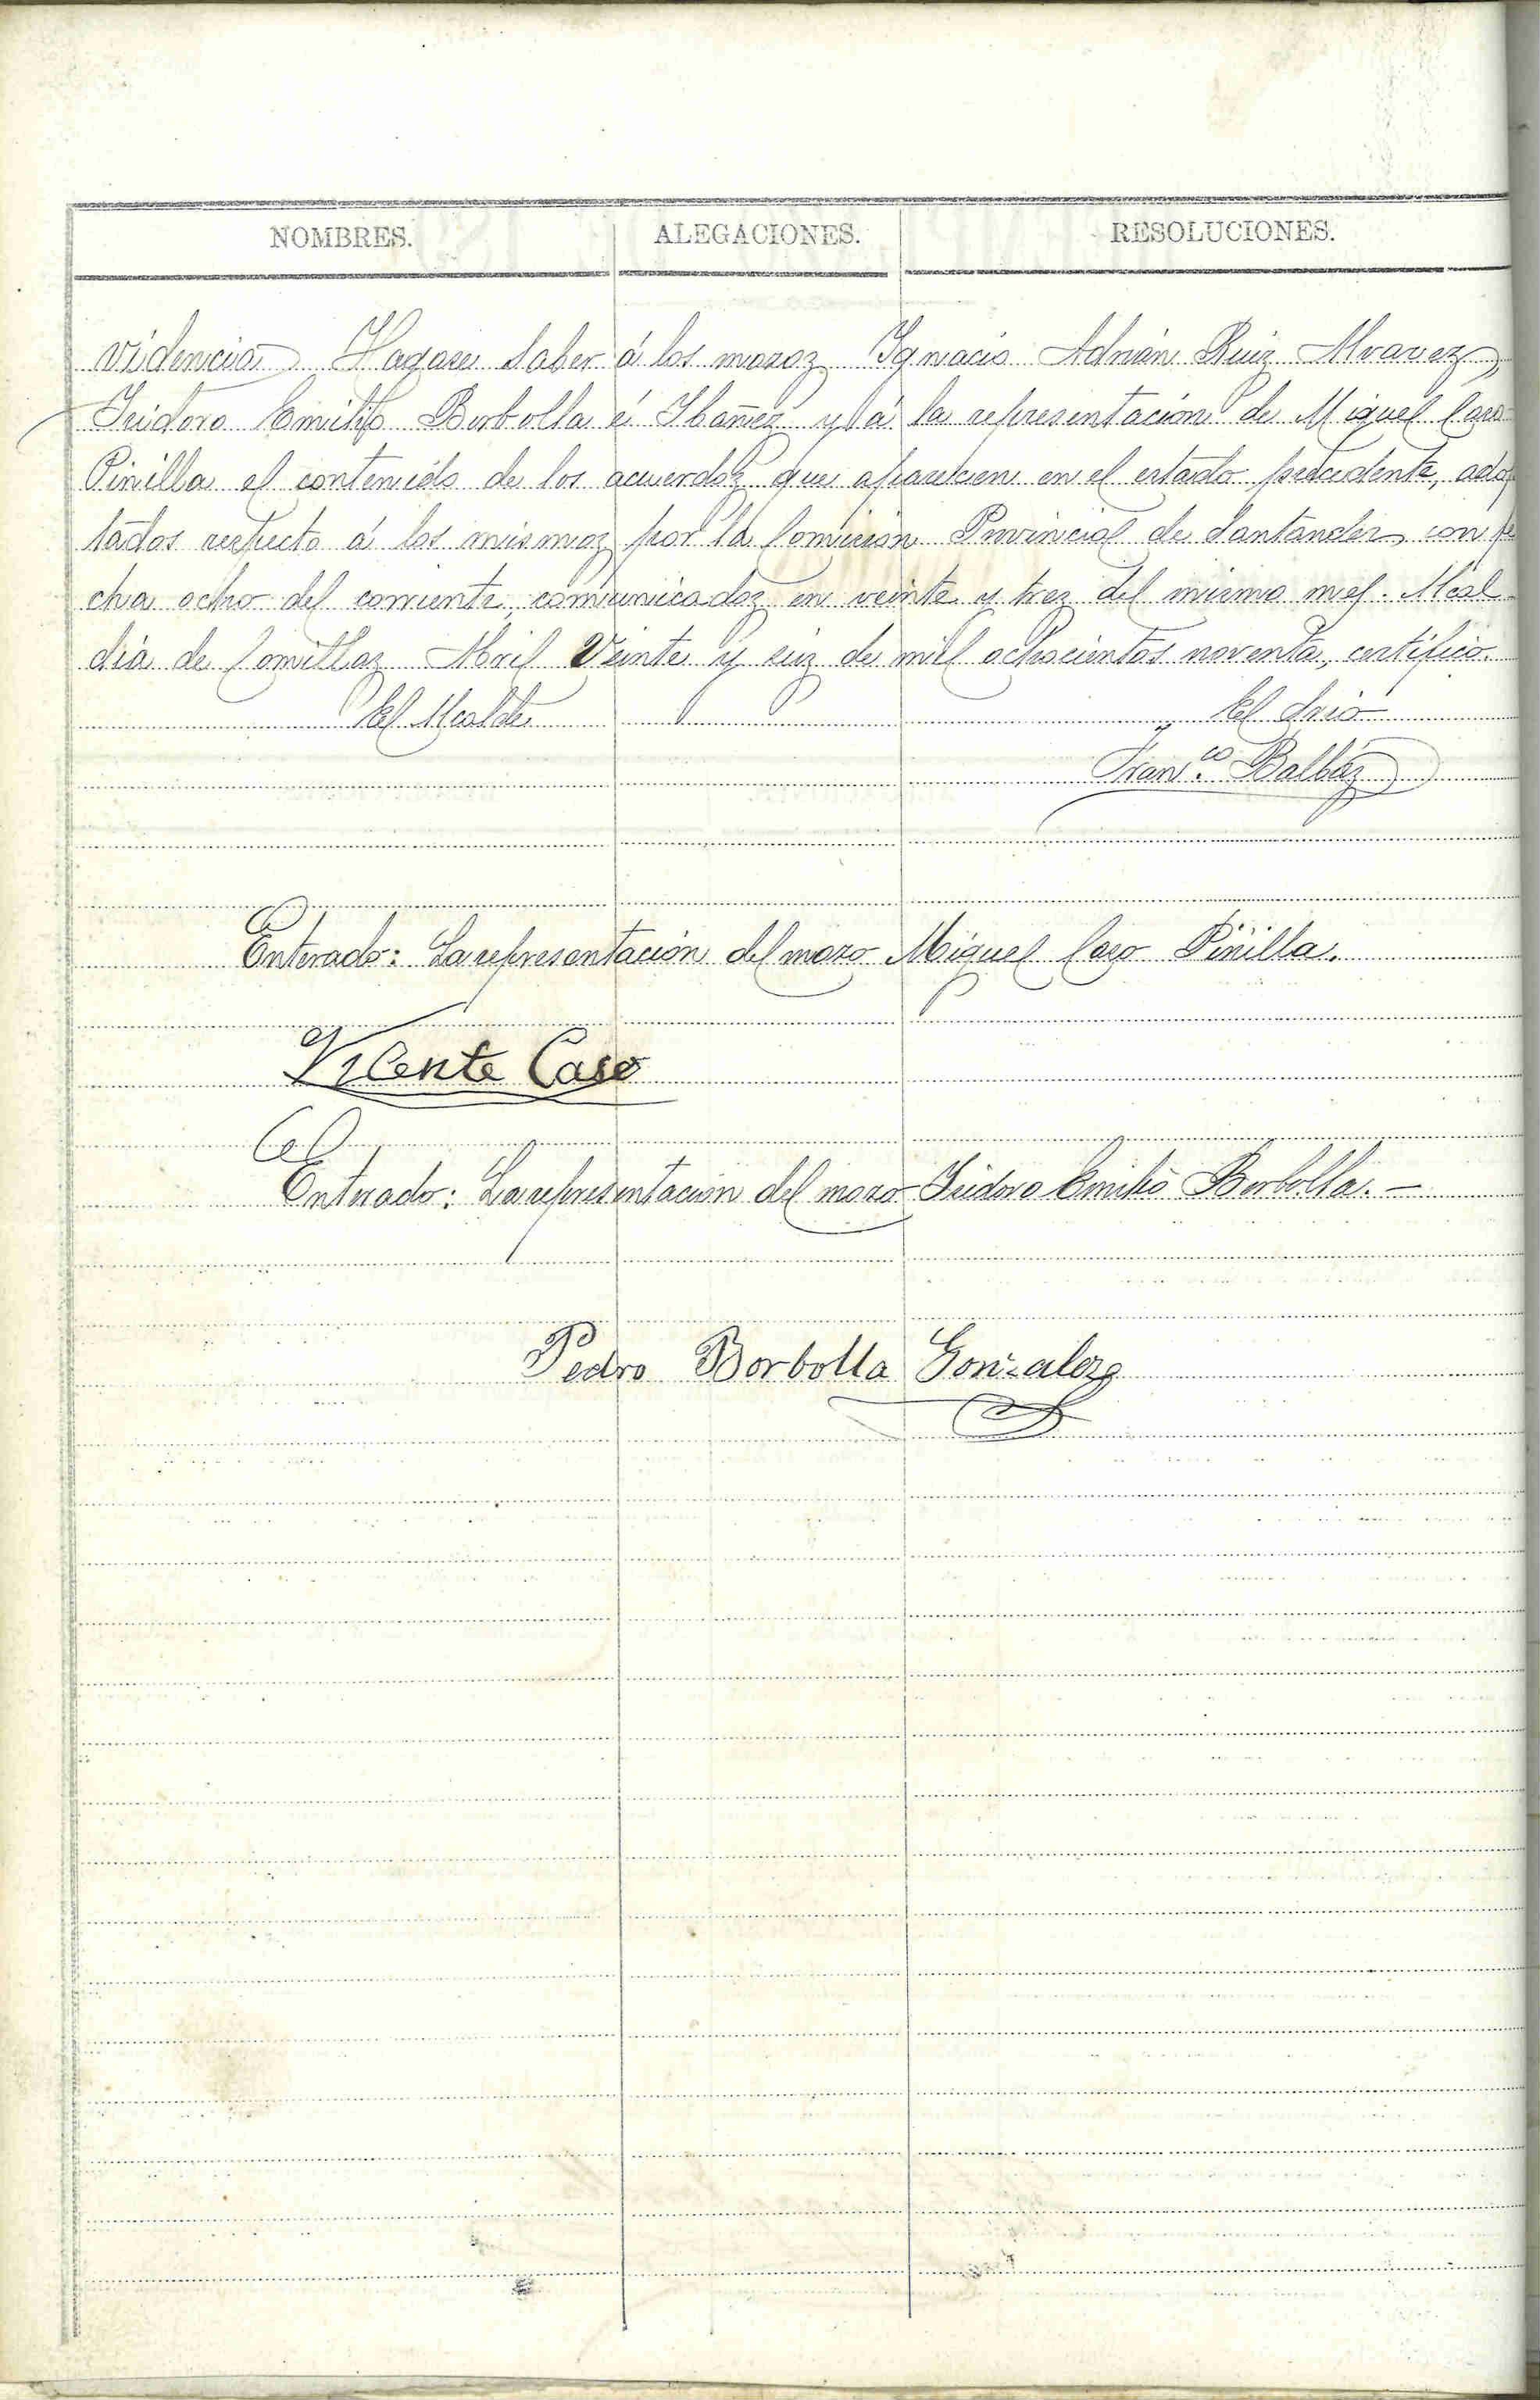 NOMBRES. ALEGACIONES. RESOLUCIONES.
videncia Hagase saber á los mozoz Ygnacio Adrián Ruiz Alvarez,
Isidoro Emilio Borbolla é Ibañez y á la representación de Miguel Caso
Pinilla el contenido de los acuerdoz que aparecen en el estado precedente, adop
tados respecto á los mismoz por la Comisión Provincial de Santander con fe
cha ocho del corriente, comunicadoz en veinte y trez del mismo mes. Alcal
día de Comillaz Abril Veinte y seiz de mil ochocientos noventa, certifico.
El Alcalde El Srio
Fran.co Balbáz
Enterado: La representación del mozo Miguel Caso Pinilla.
Vicente Caso
Enterado: La representación del mozo Isidoro Emilio Borbolla. —
Pedro Borbolla Gonzalez